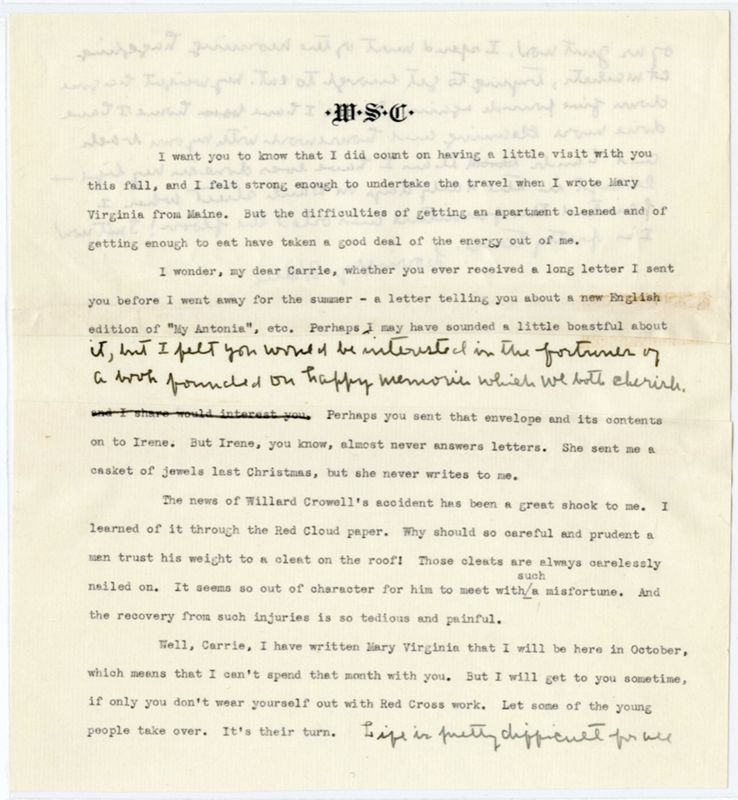 ·W·S·C·
I want you to know that I did count on having a little visit with you
this fall, and I felt strong enough to undertake the travel when I wrote Mary
Virginia from Maine. But the difficulties of getting an apartment cleaned and of
getting enough to eat have taken a good deal of the energy out of me.
I wonder, my dear Carrie, whether you ever received a long letter I sent
you before I went away for the summer - a letter telling you about a new English
edition of "My Antonia", etc. Perhaps I may have sounded a little boastful about
it, but I felt you would be interested in the fortunes of
a book founded on happy memories which we both cherish.
and I share would interest you. Perhaps you sent that envelope and its contents
on to Irene. But Irene, you know, almost never answers letters. She sent me a
casket of jewels last Christmas, but she never writes to me.
The news of Willard Crowell's accident has been a great shock to me. I
learned of it through the Red Cloud paper. Why should so careful and prudent a
man trust his weight to a cleat on the roof! Those cleats are always carelessly
such
nailed on. It seems so out of character for him to meet with/a misfortune. And
the recovery from such injuries is so tedious and painful.
Well, Carrie, I have written Mary Virginia that I will be here in October,
which means that I can't spend that month with you. But I will get to you sometime,
if only you don't wear yourself out with Red Cross work. Let some of the young
people take over. It's their turn. Life is pretty difficult for all